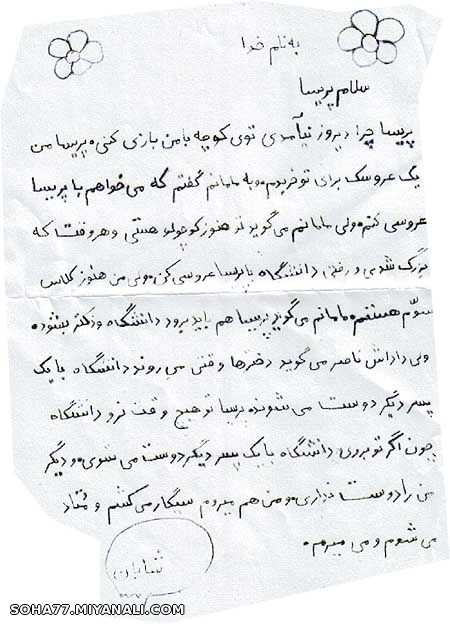 به نام خدا
سلام پریسا
پریسا چرا دیروز نیآمدی توی کوچه با من بازی کنی، پریسا من
یک عروسک برای تو خریدم، و به مامانم گفتم که می خواهم با پریسا
عروسی کنم، ولی مامانم می گوید تو هنوز کوچولو هستی و هر وقت که
بزرگ شدی و رفتی دانشگاه با پریسا عروسی کن، ولی من هنوز کلاس
سوّم هستم، مامانم می گوید پریسا هم باید برود دانشگاه و دکتر بشود،
ولی داداش ناصر می گوید دخترها وقتی می روند دانشگاه با یک
پسر دیگر دوست می شوند، پریسا تو هیچ وقت نرو دانشگاه
چون اگر تو بروی دانشگاه با یک پسر دیگر دوست می شوی، و دیگر
من را دوست نداری، و من هم میروم سیگار می کشم و مُتاد
می شوم و می میرم.
شایان
SOHA77.MIYANALI.COM